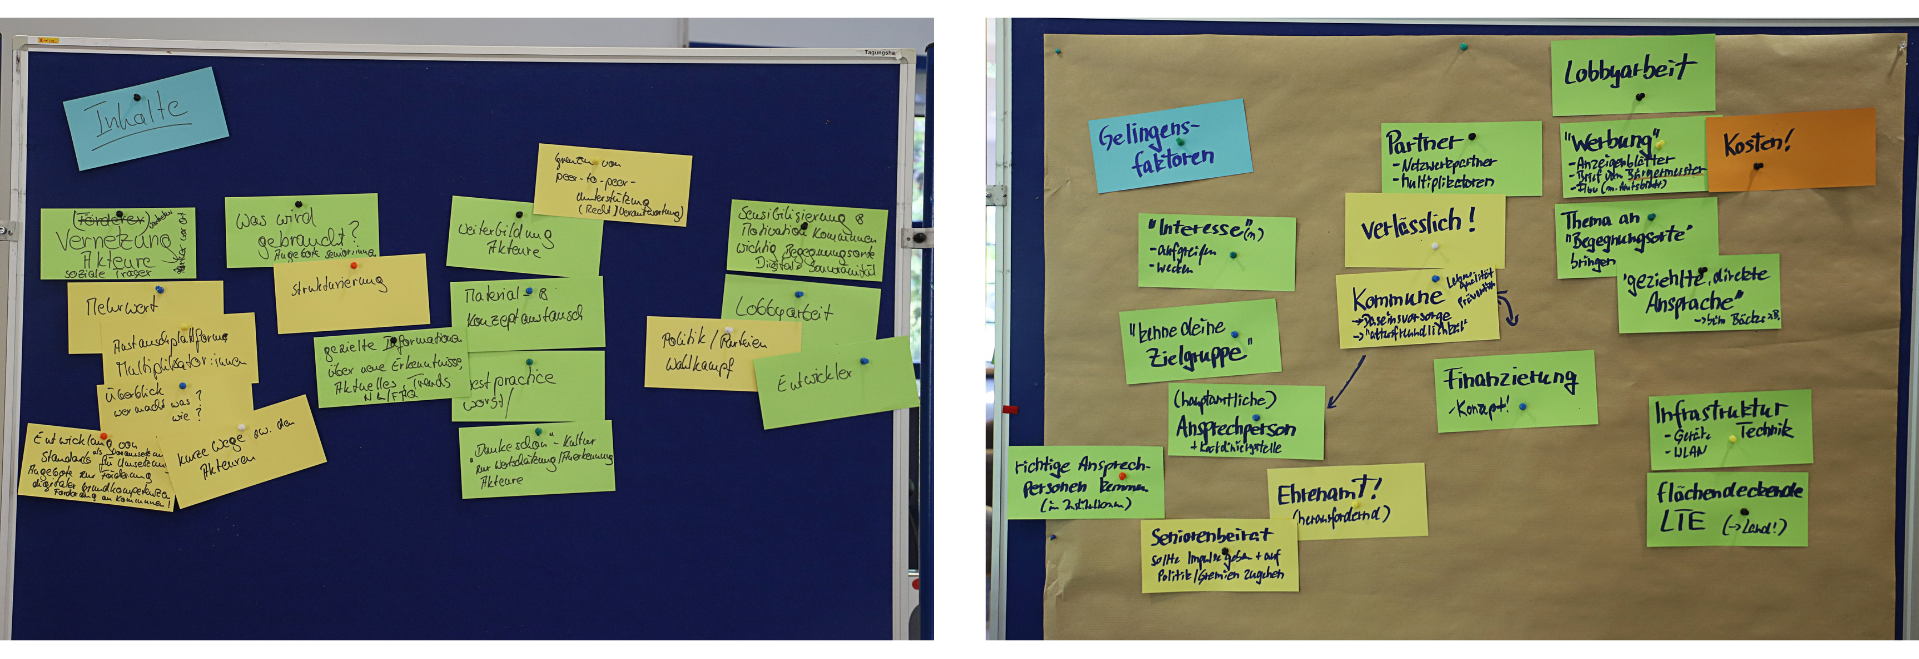 Tagungsha
Inhalte
(Förderer)
Vernetzung
Akteure
soziale Träger
Was wird
gebraucht?
Angebote
Strukturierung
Mehrwert
Austauschplattform
Multiplikator:innen
Überblick
wer macht was?
wie?
Entwicklung von
Standards
Angebote zur Förderung
digitaler Grundkompetenzen
kurze Wege zw. den
Akteuren
Grenzen von
peer-to-peer-
Unterstützung
(Recht/Verantwortung)
Weiterbildung
Akteure
Material- &
Konzeptaustausch
gezielte Information
über neue Erkenntnisse,
Aktuelles, Trends
NL/FAQ
best practice
worst/
"Dankeschön"-Kultur
zur Wertschätzung/Anerkennung
Akteure
Sensibilisierung &
Motivation Kommunen
wichtig Begegnungsorte
Digitale Souveränität
Lobbyarbeit
Politik/Parteien
Wahlkampf
Entwickler
Gelingens-
faktoren
Lobbyarbeit
Partner
- Netzwerkpartner
- Multiplikatoren
"Werbung"
- Anzeigenblätter
- Brief vom Bürgermeister
- Flyer (m. Amtsblätter)
Kosten!
"Interesse(n)
- aufgreifen
- wecken
verlässlich!
Thema an
"Begegnungsorte"
bringen
Kommune
Lebensqualität
Prävention
→ Daseinsvorsorge
→ "altersfreundlichkeit"
"gezielte, direkte
Ansprache"
→ beim Bäcker z.B.
"kenne deine
Zielgruppe"
Finanzierung
- Konzept!
(hauptamtliche)
Ansprechperson
+ Koordinierungsstelle
Infrastruktur
- Geräte Technik
- WLAN
richtige Ansprech-
Personen kennen
(in Institutionen)
Ehrenamt!
(herausfordernd)
flächendeckende
LTE (→ Land!)
Seniorenbeirat
sollte Impulse geben + auf
Politik/Gremien zugehen